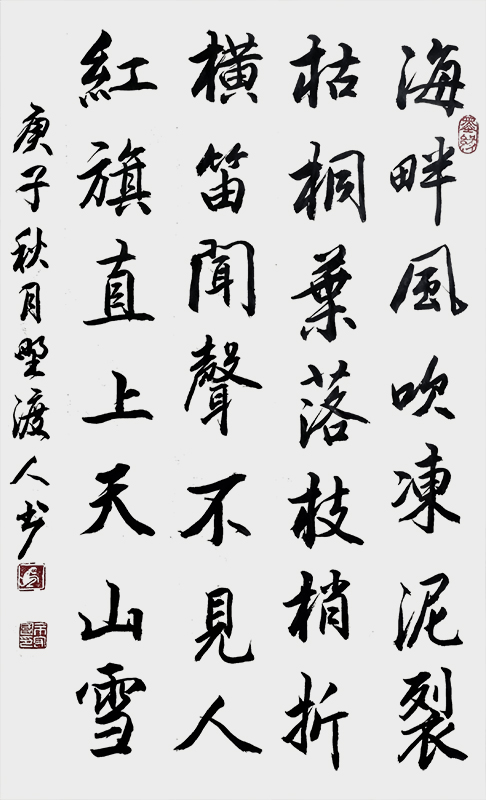 海畔風吹凍泥裂
枯桐葉落枝梢折
橫笛聞聲不見人
紅旗直上天山雪
庚子秋月野渡人书